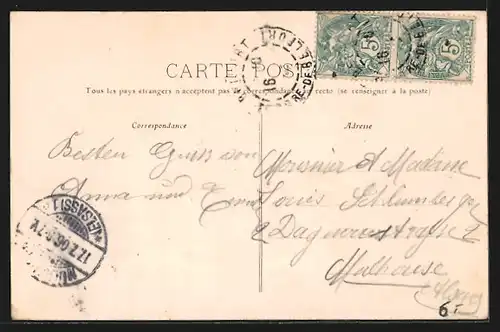 CARTE POSTALE
Tous les pays étrangers n'acceptent pas la correspondance au recto (se renseigner à la poste)
Correspondance
Adresse
Besten Gruss von
Anna und
Monsieur et Madame
Louis Schlumberger
2 Daguerrestrasse 2
Mulhouse
5
5
BELFORT
(ELSASS) 1
17.7.06.6-7V.
6f